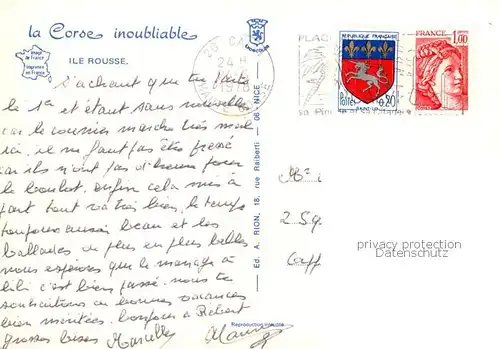 la Corse inoubliable
Image de France
Imprimé en France
ILE ROUSSE.
S'achant que tu partais
le 1er et étant sans nouvelles
car le courrier marche très mal
ici, il ne faut pas être pressé
car ils n'ont pas d'heure pour
le boulot. Enfin cela mis à
part tout va très bien, le temps
toujours aussi beau et les
ballades de plus en plus belles
nous espérons que le mariage à
lili c'est bien passé. nous te
souhaitons de bonnes vacances
bien méritées. Bonjour à Robert
grosses bises Marcelle
Reproduction interdite
Ed. A. RION, 18, rue Raiberti - 06-NICE
24 H
1978
PLAC
REPUBLIQUE FRANÇAISE
Postes 0,20
SAINT-LO
FRANCE
1,00
privacy protection
Datenschutz